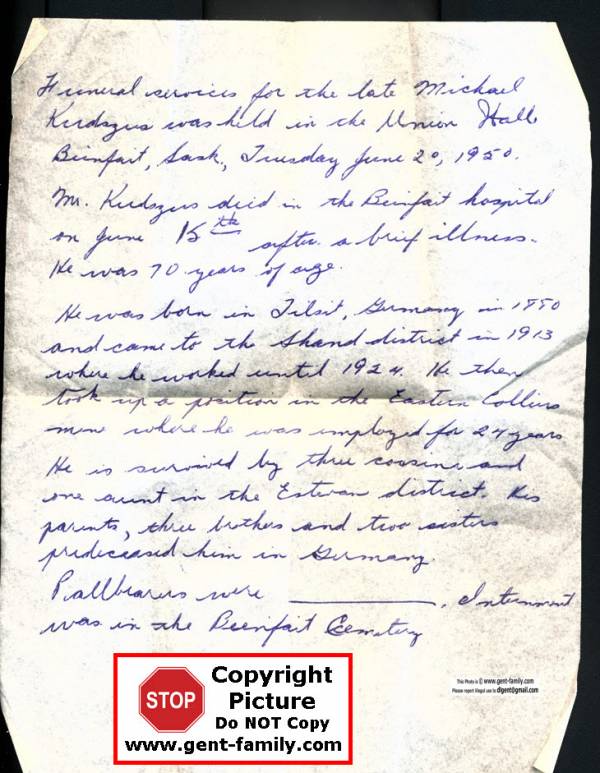 Funeral services for the late Michael
Kudszus was held in the Union Hall
Bienfait, Sask., Tuesday June 20, 1950.
Mr. Kudszus died in the Bienfait hospital
on June 15th after a brief illness.
He was 70 years of age.
He was born in Tilsit, Germany in 1880
and came to the Shand district in 1913
where he worked until 1924. He then
took up a position in the Eastern Colliers
mine where he was employed for 24 years
He is survived by three cousins and
one aunt in the Estevan district. His
parents, three brothers and two sisters
predeceased him in Germany.
Pallbearers were ____________. Internment
was in the Bienfait Cemetery
STOP
Copyright
Picture
Do NOT Copy
www.gent-family.com
This Photo is © www.gent-family.com
Please report illegal use to digent@gmail.com